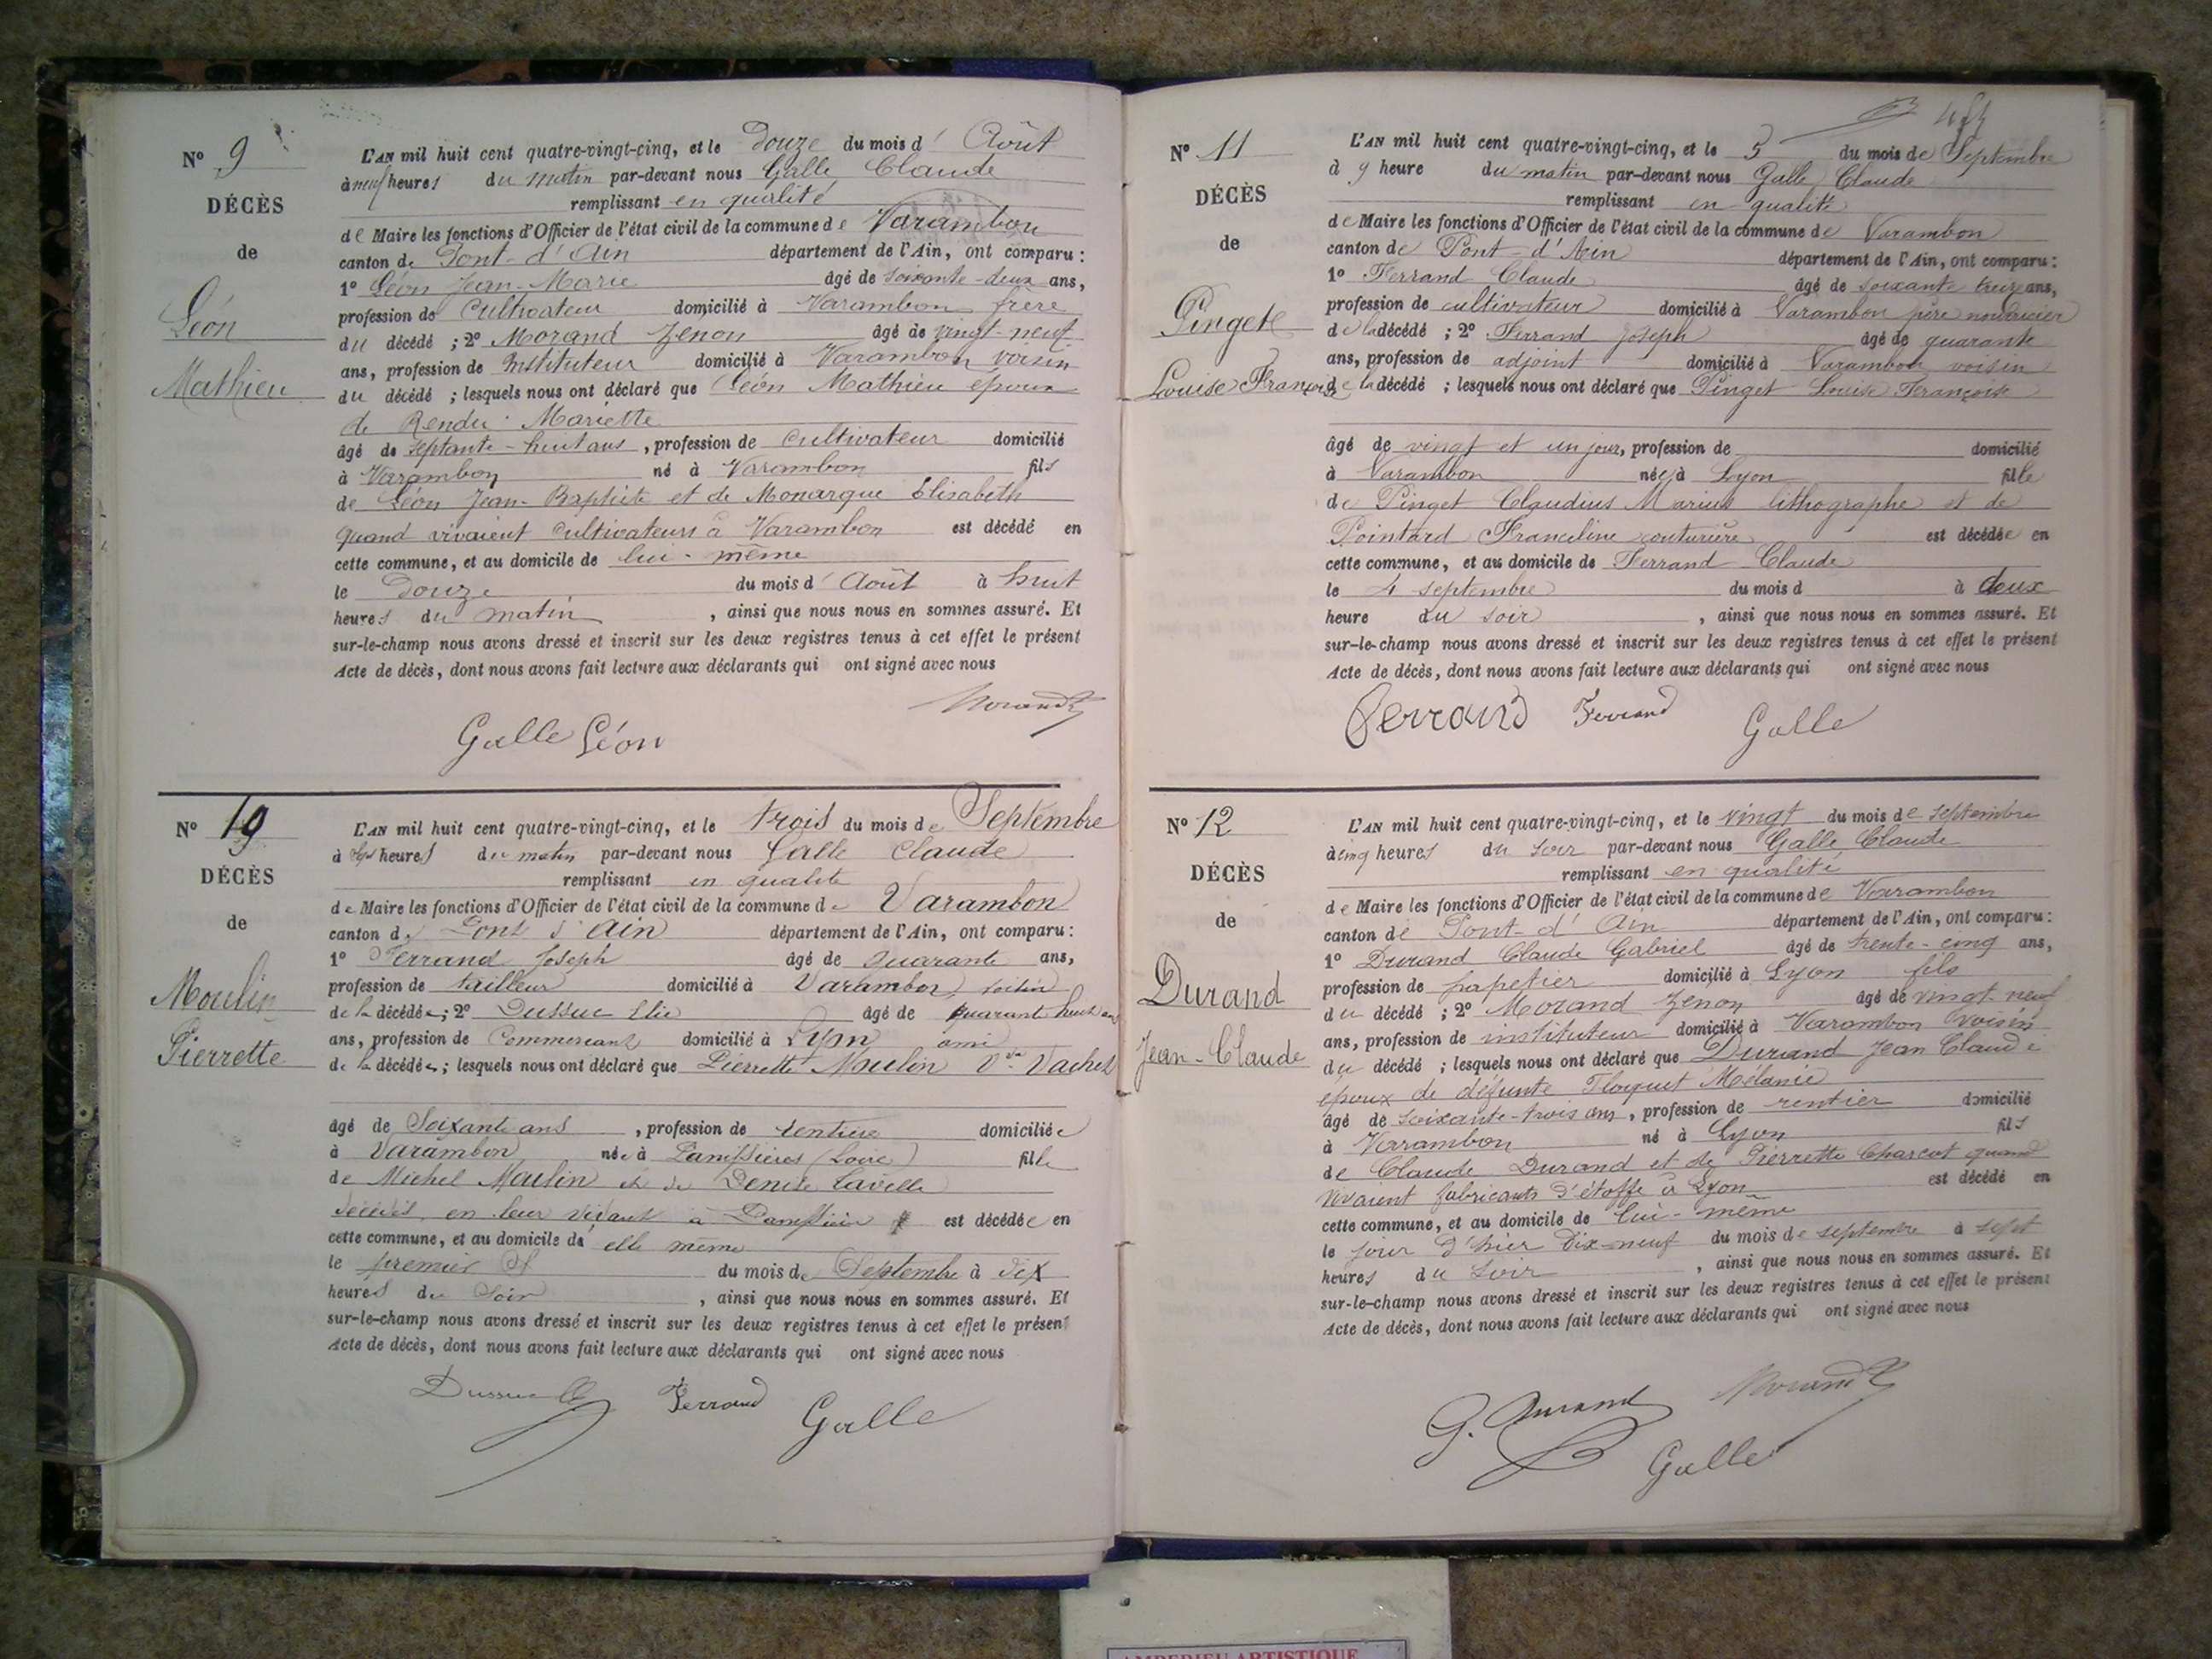 Nº 9
DÉCÈS
de
Léon
Mathieu
L'AN mil huit cent quatre-vingt-cinq, et le Douze du mois d' Août
à neuf heures du matin par-devant nous Galle Claude
remplissant en qualité
de Maire les fonctions d'Officier de l'état civil de la commune de Varambon
canton de Pont-d'Ain département de l'Ain, ont comparu :
1º Léon Jean-Marie âgé de soixante-deux ans,
profession de Cultivateur domicilié à Varambon frère
du décédé ; 2º Morand Zenon âgé de vingt-neuf
ans, profession de Instituteur domicilié à Varambon voisin
du décédé ; lesquels nous ont déclaré que Léon Mathieu époux
de Rendu Mariette
âgé de septante-huit ans, profession de Cultivateur domicilié
à Varambon né à Varambon fils
de Léon Jean-Baptiste et de Monarque Elisabeth
quand vivaient cultivateurs à Varambon est décédé en
cette commune, et au domicile de lui-même
le Douze du mois d' Août à huit
heures du matin, ainsi que nous nous en sommes assuré. Et
sur-le-champ nous avons dressé et inscrit sur les deux registres tenus à cet effet le présent
Acte de décès, dont nous avons fait lecture aux déclarants qui ont signé avec nous
Morand
Galle Léon
Nº 10
DÉCÈS
de
Moulin
Pierrette
L'AN mil huit cent quatre-vingt-cinq, et le trois du mois de Septembre
à heures du matin par-devant nous Galle Claude
remplissant en qualité
de Maire les fonctions d'Officier de l'état civil de la commune de Varambon
canton de Pont d'Ain département de l'Ain, ont comparu :
1º Ferrand Joseph âgé de quarante ans,
profession de tailleur domicilié à Varambon voisin
de la décédée ; 2º Dussuc Elie âgé de quarante huit ans
ans, profession de Commerçant domicilié à Lyon ami
de la décédée ; lesquels nous ont déclaré que Pierrette Moulin Vve Vachet
âgé de Soixante ans, profession de rentière domiciliée
à Varambon née à (Loire) fille
de Michel Moulin et de Denise Lavelle
décédés en leur vivant à est décédée en
cette commune, et au domicile de elle même
le premier du mois de Septembre à dix
heures du Soir, ainsi que nous nous en sommes assuré. Et
sur-le-champ nous avons dressé et inscrit sur les deux registres tenus à cet effet le présent
Acte de décès, dont nous avons fait lecture aux déclarants qui ont signé avec nous
Dussuc Ferrand Galle
Nº 11
DÉCÈS
de
Pinget
Louise Françoise
L'AN mil huit cent quatre-vingt-cinq, et le 5 du mois de Septembre
à 9 heure du matin par-devant nous Galle Claude
remplissant en qualité
de Maire les fonctions d'Officier de l'état civil de la commune de Varambon
canton de Pont-d'Ain département de l'Ain, ont comparu :
1º Ferrand Claude âgé de soixante treize ans,
profession de cultivateur domicilié à Varambon père nourricier
de la décédé ; 2º Ferrand Joseph âgé de quarante
ans, profession de adjoint domicilié à Varambon voisin
de la décédé ; lesquels nous ont déclaré que Pinget Louise Françoise
âgé de vingt et un jour, profession de domicilié
à Varambon née à Lyon fille
de Pinget Claudius Marius lithographe et de
Pointard Franceline couturière est décédée en
cette commune, et au domicile de Ferrand Claude
le 4 septembre du mois d à deux
heure du soir, ainsi que nous nous en sommes assuré. Et
sur-le-champ nous avons dressé et inscrit sur les deux registres tenus à cet effet le présent
Acte de décès, dont nous avons fait lecture aux déclarants qui ont signé avec nous
Ferrand Ferrand Galle
Nº 12
DÉCÈS
de
Durand
Jean-Claude
L'AN mil huit cent quatre-vingt-cinq, et le vingt du mois de septembre
à cinq heures du soir par-devant nous Galle Claude
remplissant en qualité
de Maire les fonctions d'Officier de l'état civil de la commune de Varambon
canton de Pont-d'Ain département de l'Ain, ont comparu :
1º Durand Claude Gabriel âgé de trente-cinq ans,
profession de papetier domicilié à Lyon fils
du décédé ; 2º Morand Zenon âgé de vingt-neuf
ans, profession de instituteur domicilié à Varambon voisin
du décédé ; lesquels nous ont déclaré que Durand Jean Claude
époux de défunte Floquet Mélanie
âgé de soixante-trois ans, profession de rentier domicilié
à Varambon né à Lyon fils
de Claude Durand et de Pierrette Charcot quand
vivaient fabricants d'étoffe à Lyon est décédé en
cette commune, et au domicile de lui-même
le jour d'hier dix-neuf du mois de septembre à sept
heures du soir, ainsi que nous nous en sommes assuré. Et
sur-le-champ nous avons dressé et inscrit sur les deux registres tenus à cet effet le présent
Acte de décès, dont nous avons fait lecture aux déclarants qui ont signé avec nous
G. Durand Morand
Galle